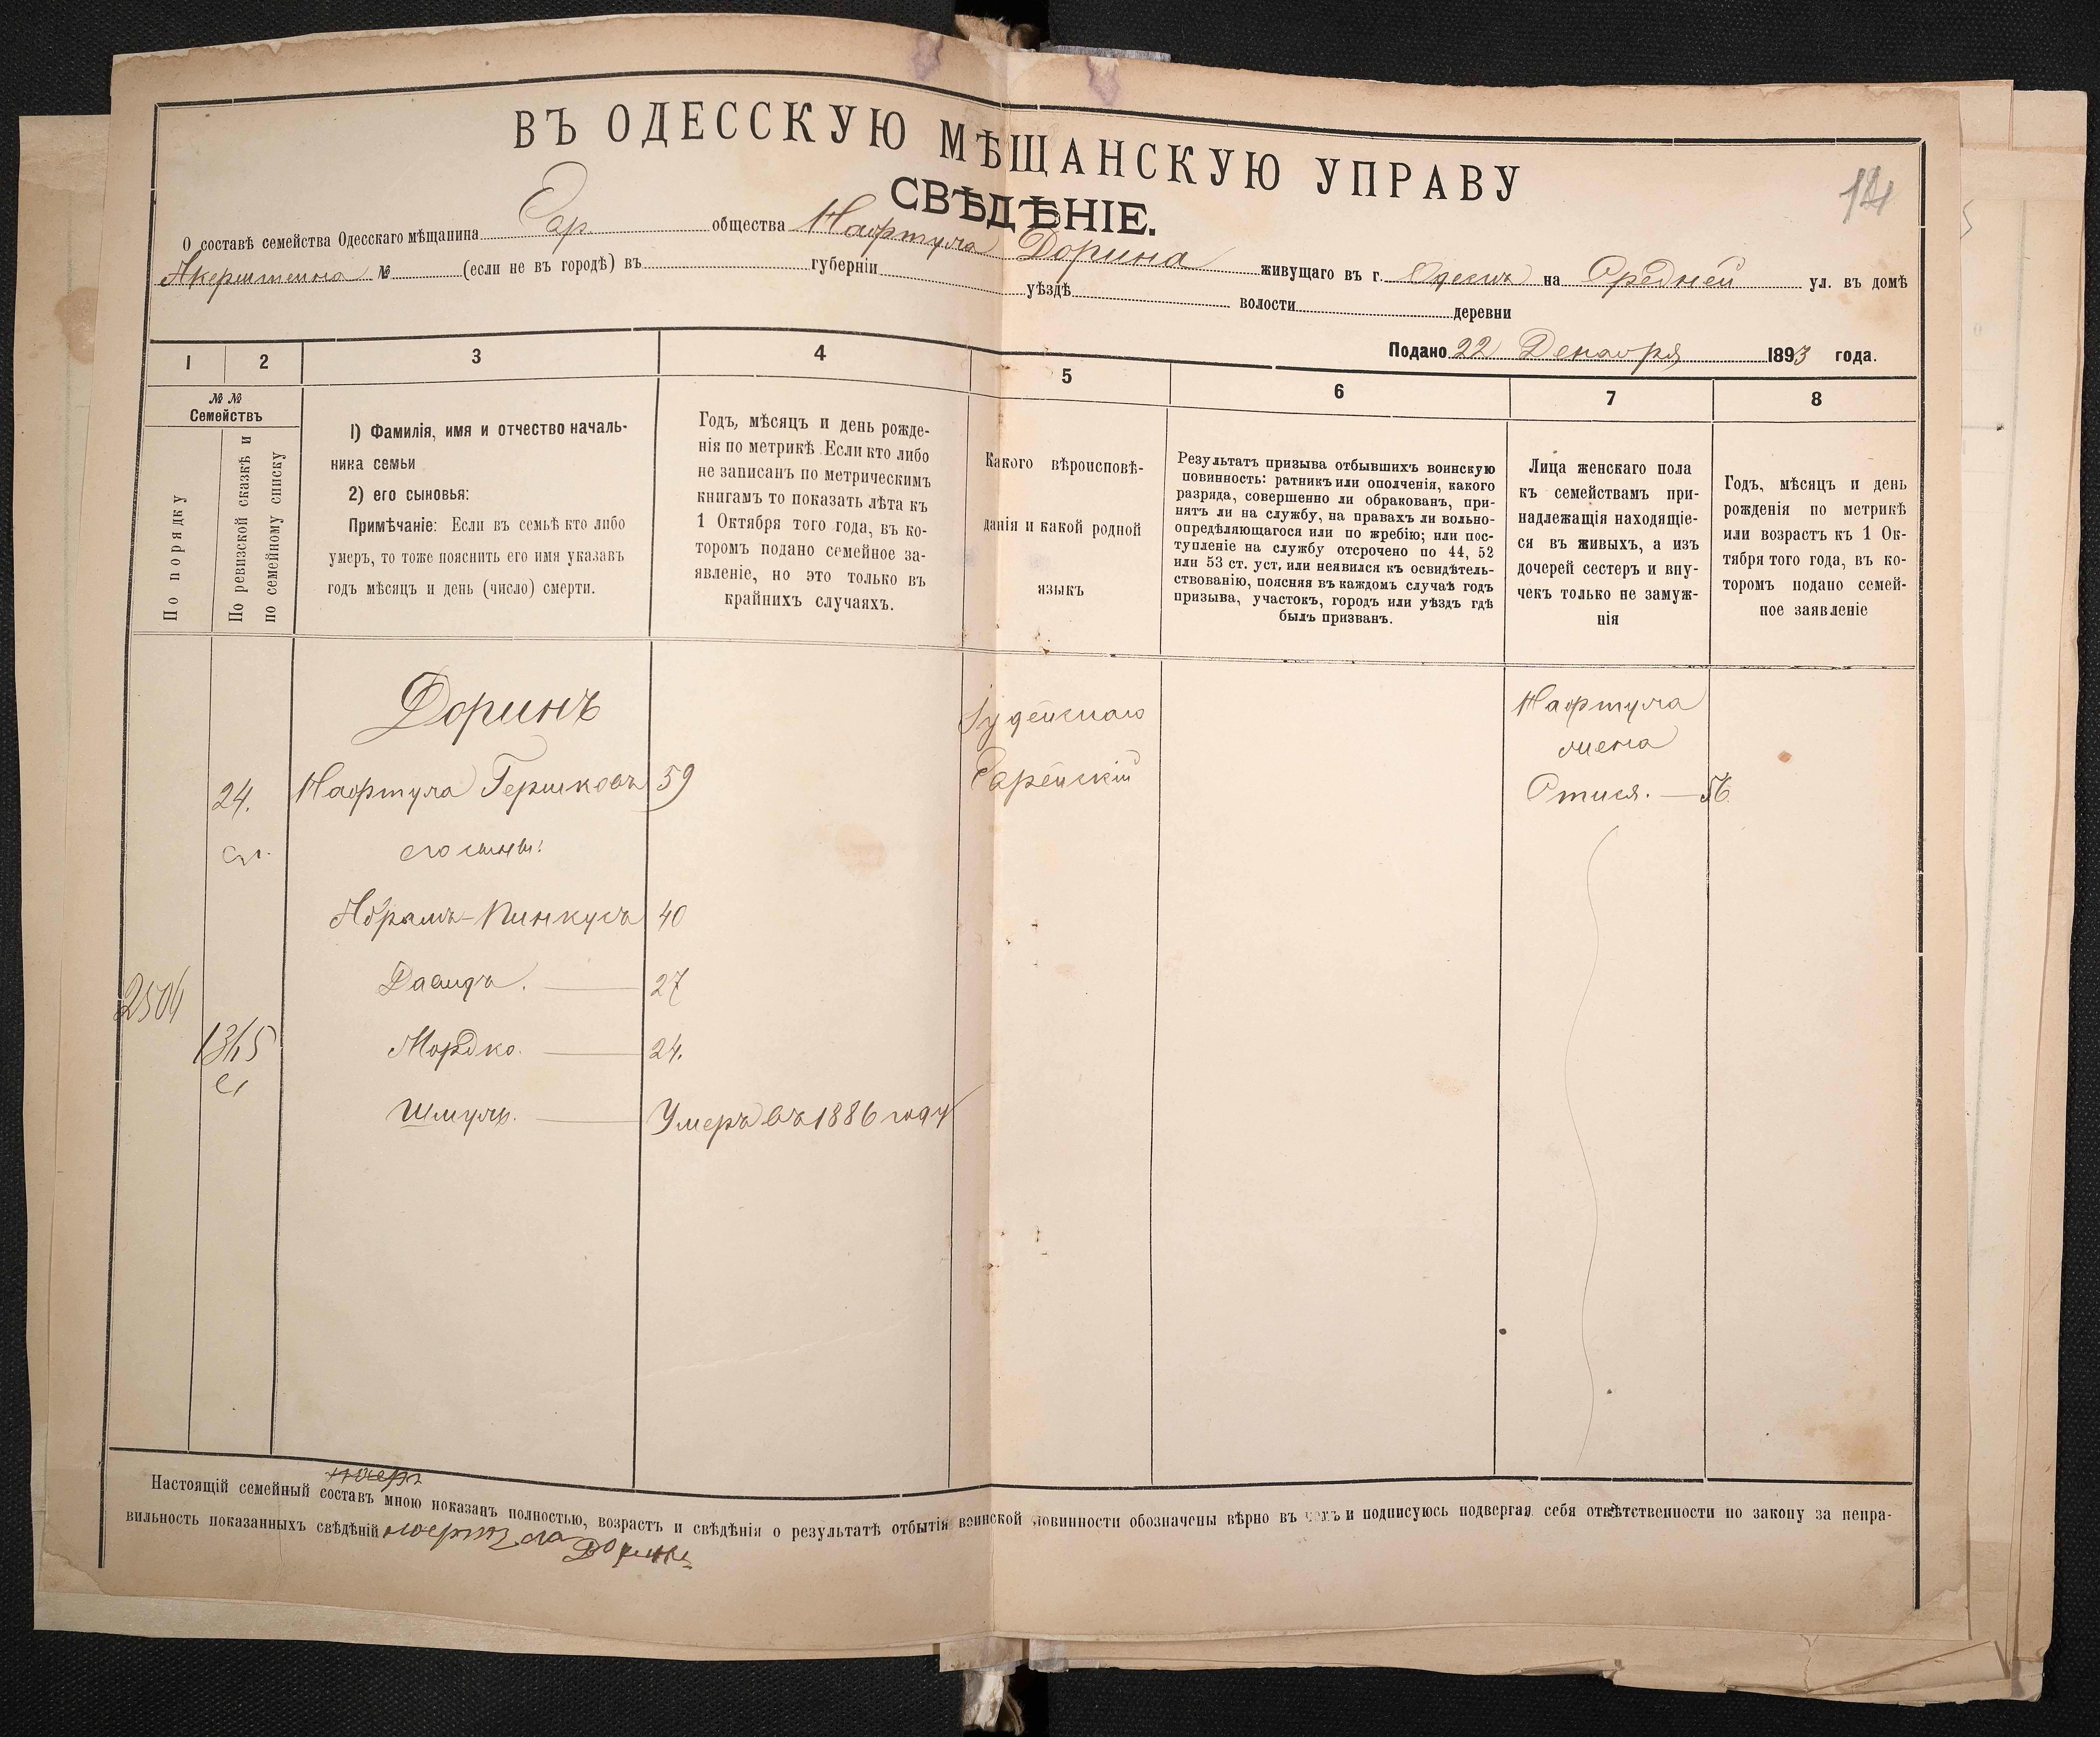 14
ВЪ ОДЕССКУЮ МѢЩАНСКУЮ УПРАВУ
СВѢДѢНІЕ.
О составѣ семейства Одесскаго мѣщанина Евр. общества Нафтула Дорина живущаго въ г. Одессѣ на Средней ул. въ домѣ
Акерштейна № (если не въ городѣ) въ губерніи уѣздѣ волости деревни
Подано 22 Декабря 1893 года.
1 2 3 4 5 6 7 8
№ №
Семействъ
По порядку
По ревизской сказкѣ и
по семейному списку
1) Фамилія, имя и отчество началь-
ника семьи
2) его сыновья:
Примѣчаніе: Если въ семьѣ кто либо
умеръ, то тоже пояснить его имя указавъ
годъ мѣсяцъ и день (число) смерти.
Годъ, мѣсяцъ и день рожде-
нія по метрикѣ. Если кто либо
не записанъ по метрическимъ
книгамъ то показать лѣта къ
1 Октября того года, въ ко-
торомъ подано семейное за-
явленіе, но это только въ
крайнихъ случаяхъ.
Какого вѣроисповѣ-
данія и какой родной
языкъ
Результатъ призыва отбывшихъ воинскую
повинность: ратникъ или ополченія, какого
разряда, совершенно ли обракованъ, при-
нятъ ли на службу, на правахъ ли вольно-
опредѣляющагося или по жребію; или пос-
тупленіе на службу отсрочено по 44, 52
или 53 ст. уст, или неявился къ освидѣтель-
ствованію, поясняя въ каждомъ случаѣ годъ
призыва, участокъ, городъ или уѣздъ гдѣ
былъ призванъ.
Лица женскаго пола
къ семействамъ при-
надлежащія находящіе-
ся въ живыхъ, а изъ
дочерей сестеръ и вну-
чекъ только не замуж-
нія
Годъ, мѣсяцъ и день
рожденія по метрикѣ
или возрастъ къ 1 Ок-
тября того года, въ ко-
торомъ подано семей-
ное заявленіе
Доринъ Іудейскаго Нафтула
жена
24. Нафтула Гершковъ 59 Еврейскій Отися. — 56
его сыновья:
Абрамъ-Пинкусъ 40
Давидъ. — 27
Мордко. — 24.
Шмуль. — Умеръ въ 1886 году
Настоящій семейный составъ мною показанъ полностью, возрастъ и свѣдѣнія о результатѣ отбытія воинской повинности обозначены вѣрно въ чемъ и подписуюсь подвергая себя отвѣтственности по закону за непра-
вильность показанныхъ свѣдѣній